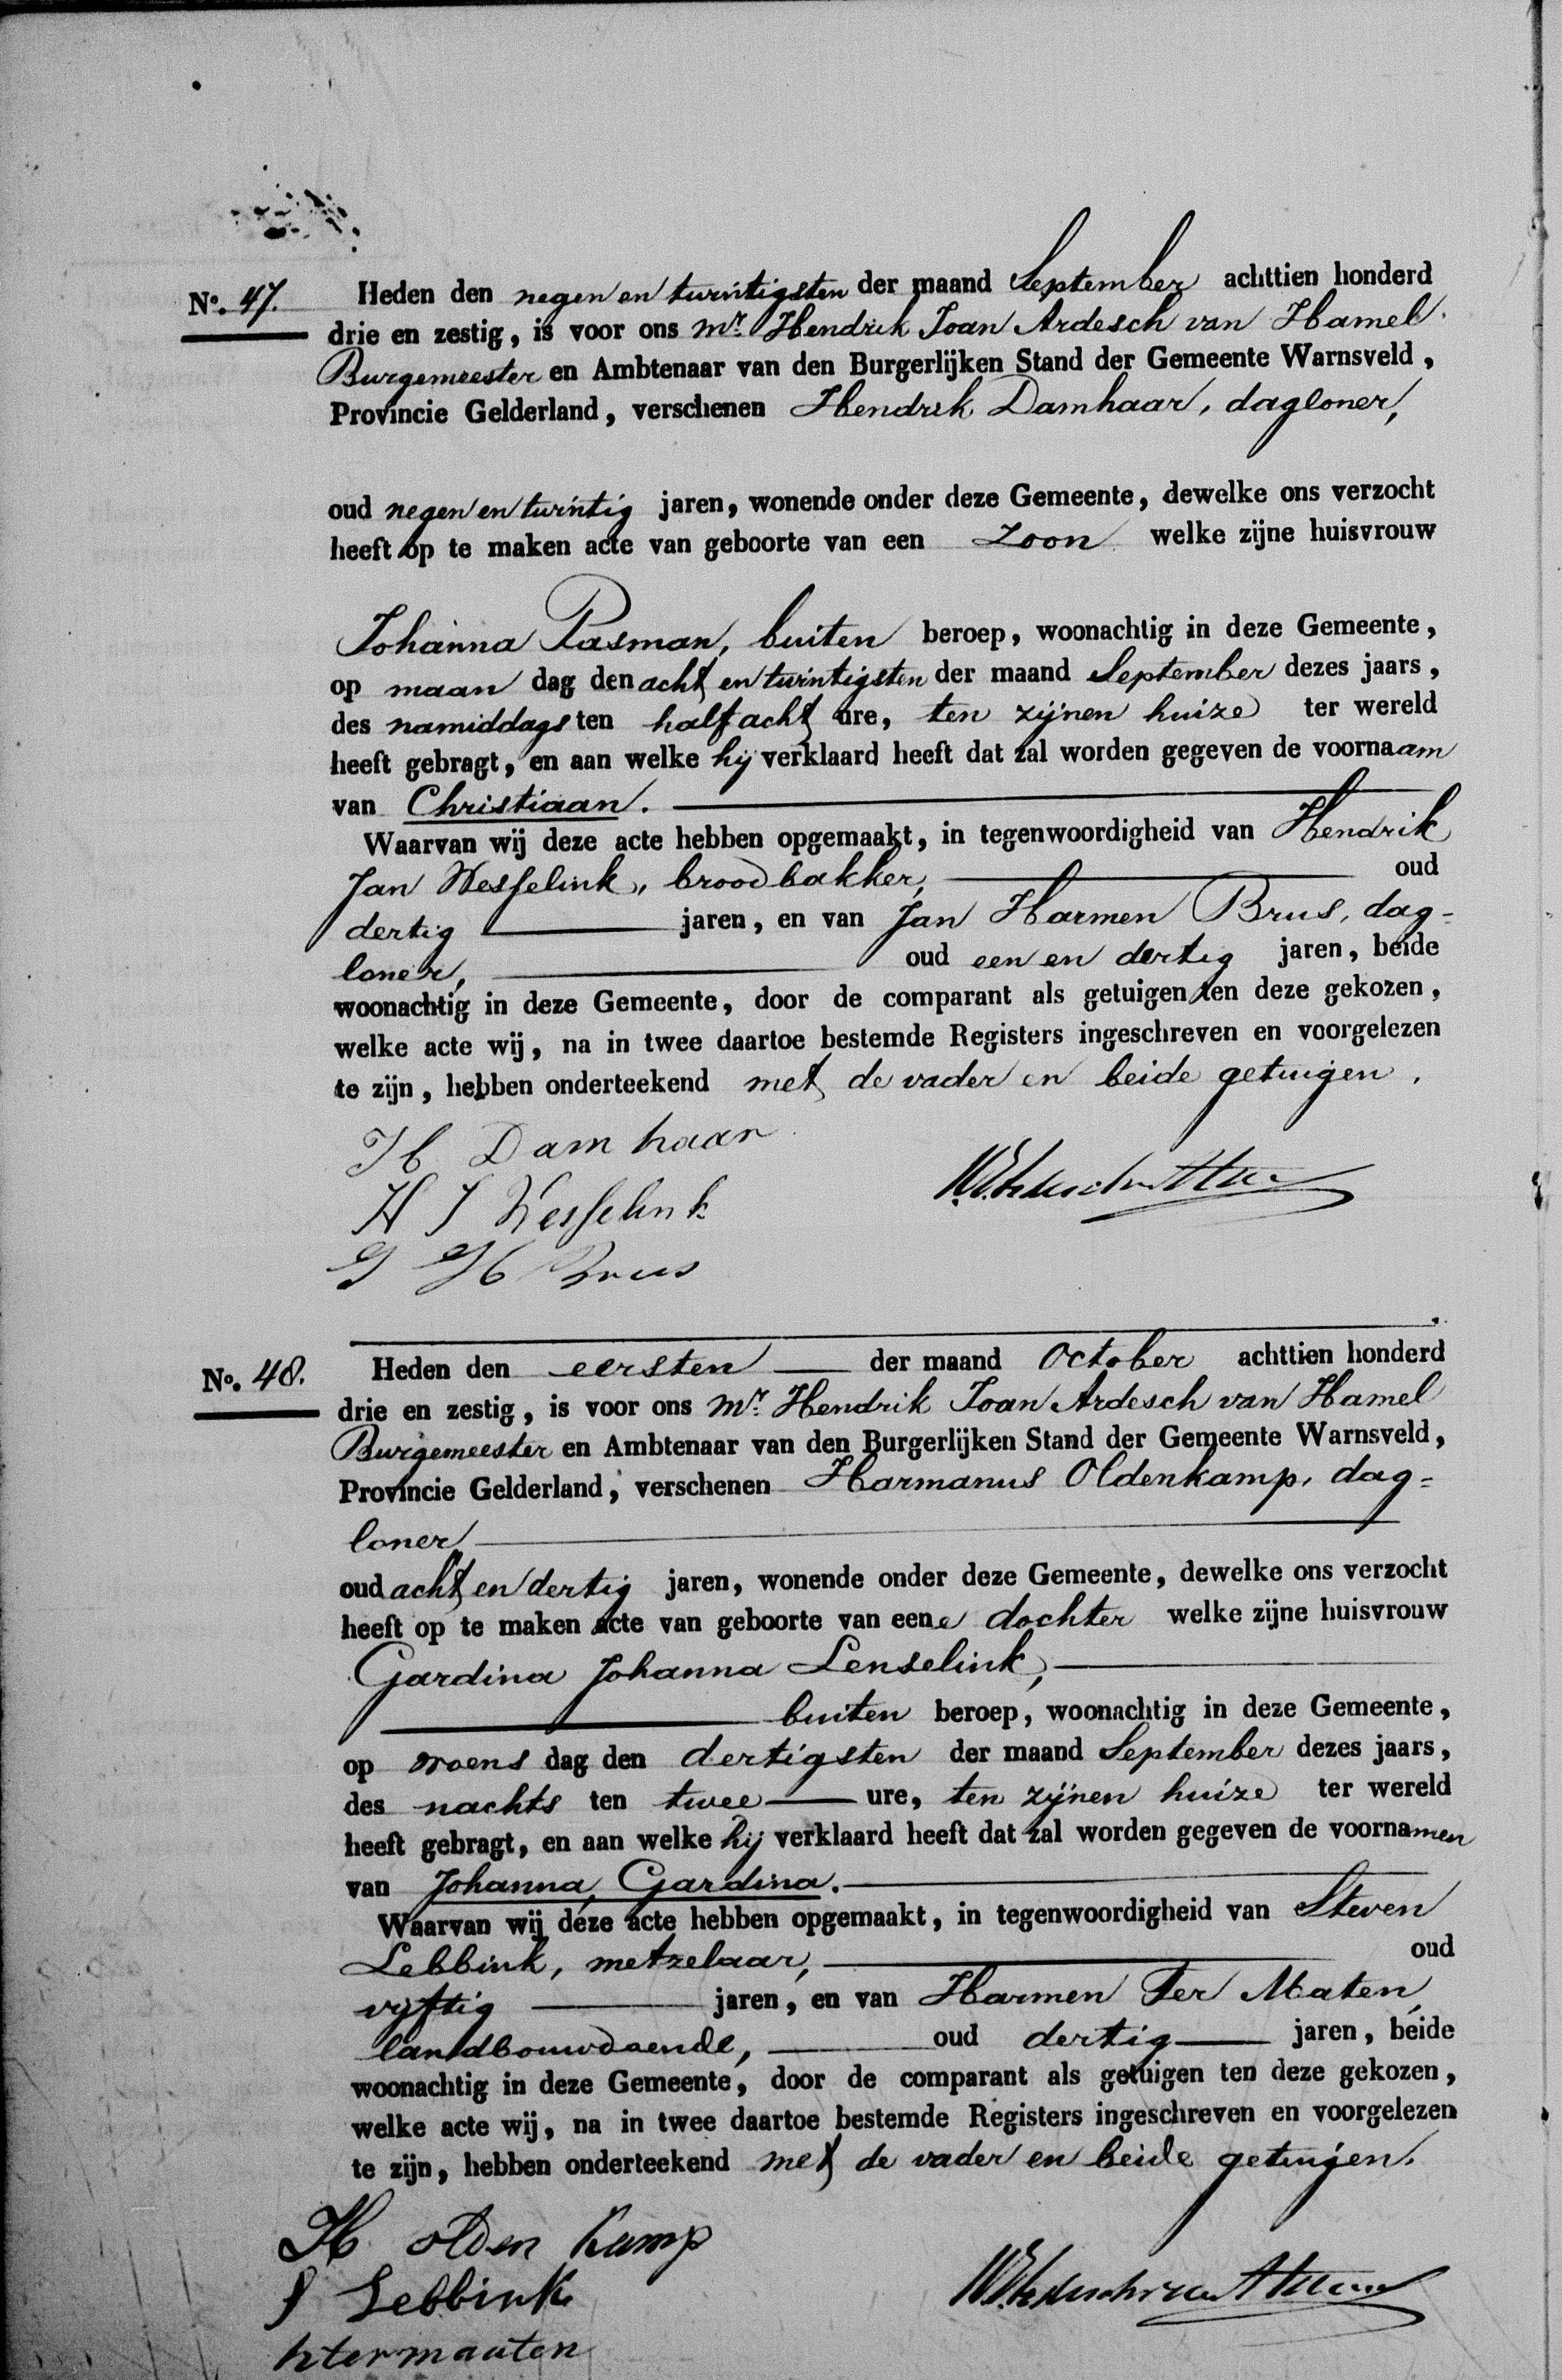 No. 47. Heden den negen en twintigsten der maand September achttien honderd
drie en zestig, is voor ons Mr. Hendrik Joan Ardesch van Hamel
Burgemeester en Ambtenaar van den Burgerlijken Stand der Gemeente Warnsveld,
Provincie Gelderland, verschenen Hendrik Damhaar, dagloner,
oud negen en twintig jaren, wonende onder deze Gemeente, dewelke ons verzocht
heeft op te maken acte van geboorte van een Zoon welke zijne huisvrouw
Johanna Pasman, buiten beroep, woonachtig in deze Gemeente,
op maan dag den acht en twintigsten der maand September dezes jaars,
des namiddags ten half acht ure, ten zijnen huize ter wereld
heeft gebragt, en aan welke hij verklaard heeft dat zal worden gegeven de voornaam
van Christiaan.
Waarvan wij deze acte hebben opgemaakt, in tegenwoordigheid van Hendrik
Jan Wesselink, broodbakker, oud
dertig jaren, en van Jan Harmen Brus, dag=
loner, oud een en dertig jaren, beide
woonachtig in deze Gemeente, door de comparant als getuigen ten deze gekozen,
welke acte wij, na in twee daartoe bestemde Registers ingeschreven en voorgelezen
te zijn, hebben onderteekend met de vader en beide getuigen.
H Damhaar
H J Wesselink
J H Brus
No. 48. Heden den eersten der maand October achttien honderd
drie en zestig, is voor ons Mr. Hendrik Joan Ardesch van Hamel
Burgemeester en Ambtenaar van den Burgerlijken Stand der Gemeente Warnsveld,
Provincie Gelderland, verschenen Harmanus Oldenkamp, dag=
loner
oud acht en dertig jaren, wonende onder deze Gemeente, dewelke ons verzocht
heeft op te maken acte van geboorte van eene dochter welke zijne huisvrouw
Gardina Johanna Lenselink,
buiten beroep, woonachtig in deze Gemeente,
op woens dag den dertigsten der maand September dezes jaars,
des nachts ten twee ure, ten zijnen huize ter wereld
heeft gebragt, en aan welke hij verklaard heeft dat zal worden gegeven de voornamen
van Johanna, Gardina.
Waarvan wij deze acte hebben opgemaakt, in tegenwoordigheid van Steven
Lebbink, metzelaar, oud
vijftig jaren, en van Harmen Ter Maten,
landbouwdoende, oud dertig jaren, beide
woonachtig in deze Gemeente, door de comparant als getuigen ten deze gekozen,
welke acte wij, na in twee daartoe bestemde Registers ingeschreven en voorgelezen
te zijn, hebben onderteekend met de vader en beide getuigen.
H olden kamp
S Lebbink
h termaaten